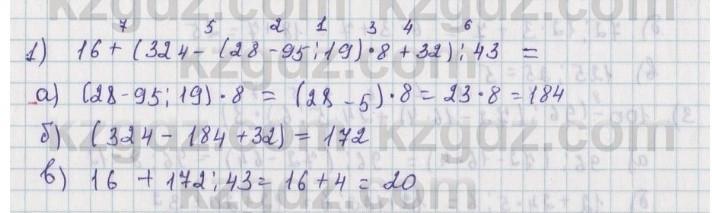 7 5 2 1 3 4 6
1) 16 + (324 - (28 - 95 : 19) · 8 + 32) : 43 =
а) (28 - 95 : 19) · 8 = (28 - 5) · 8 = 23 · 8 = 184
б) (324 - 184 + 32) = 172
в) 16 + 172 : 43 = 16 + 4 = 20